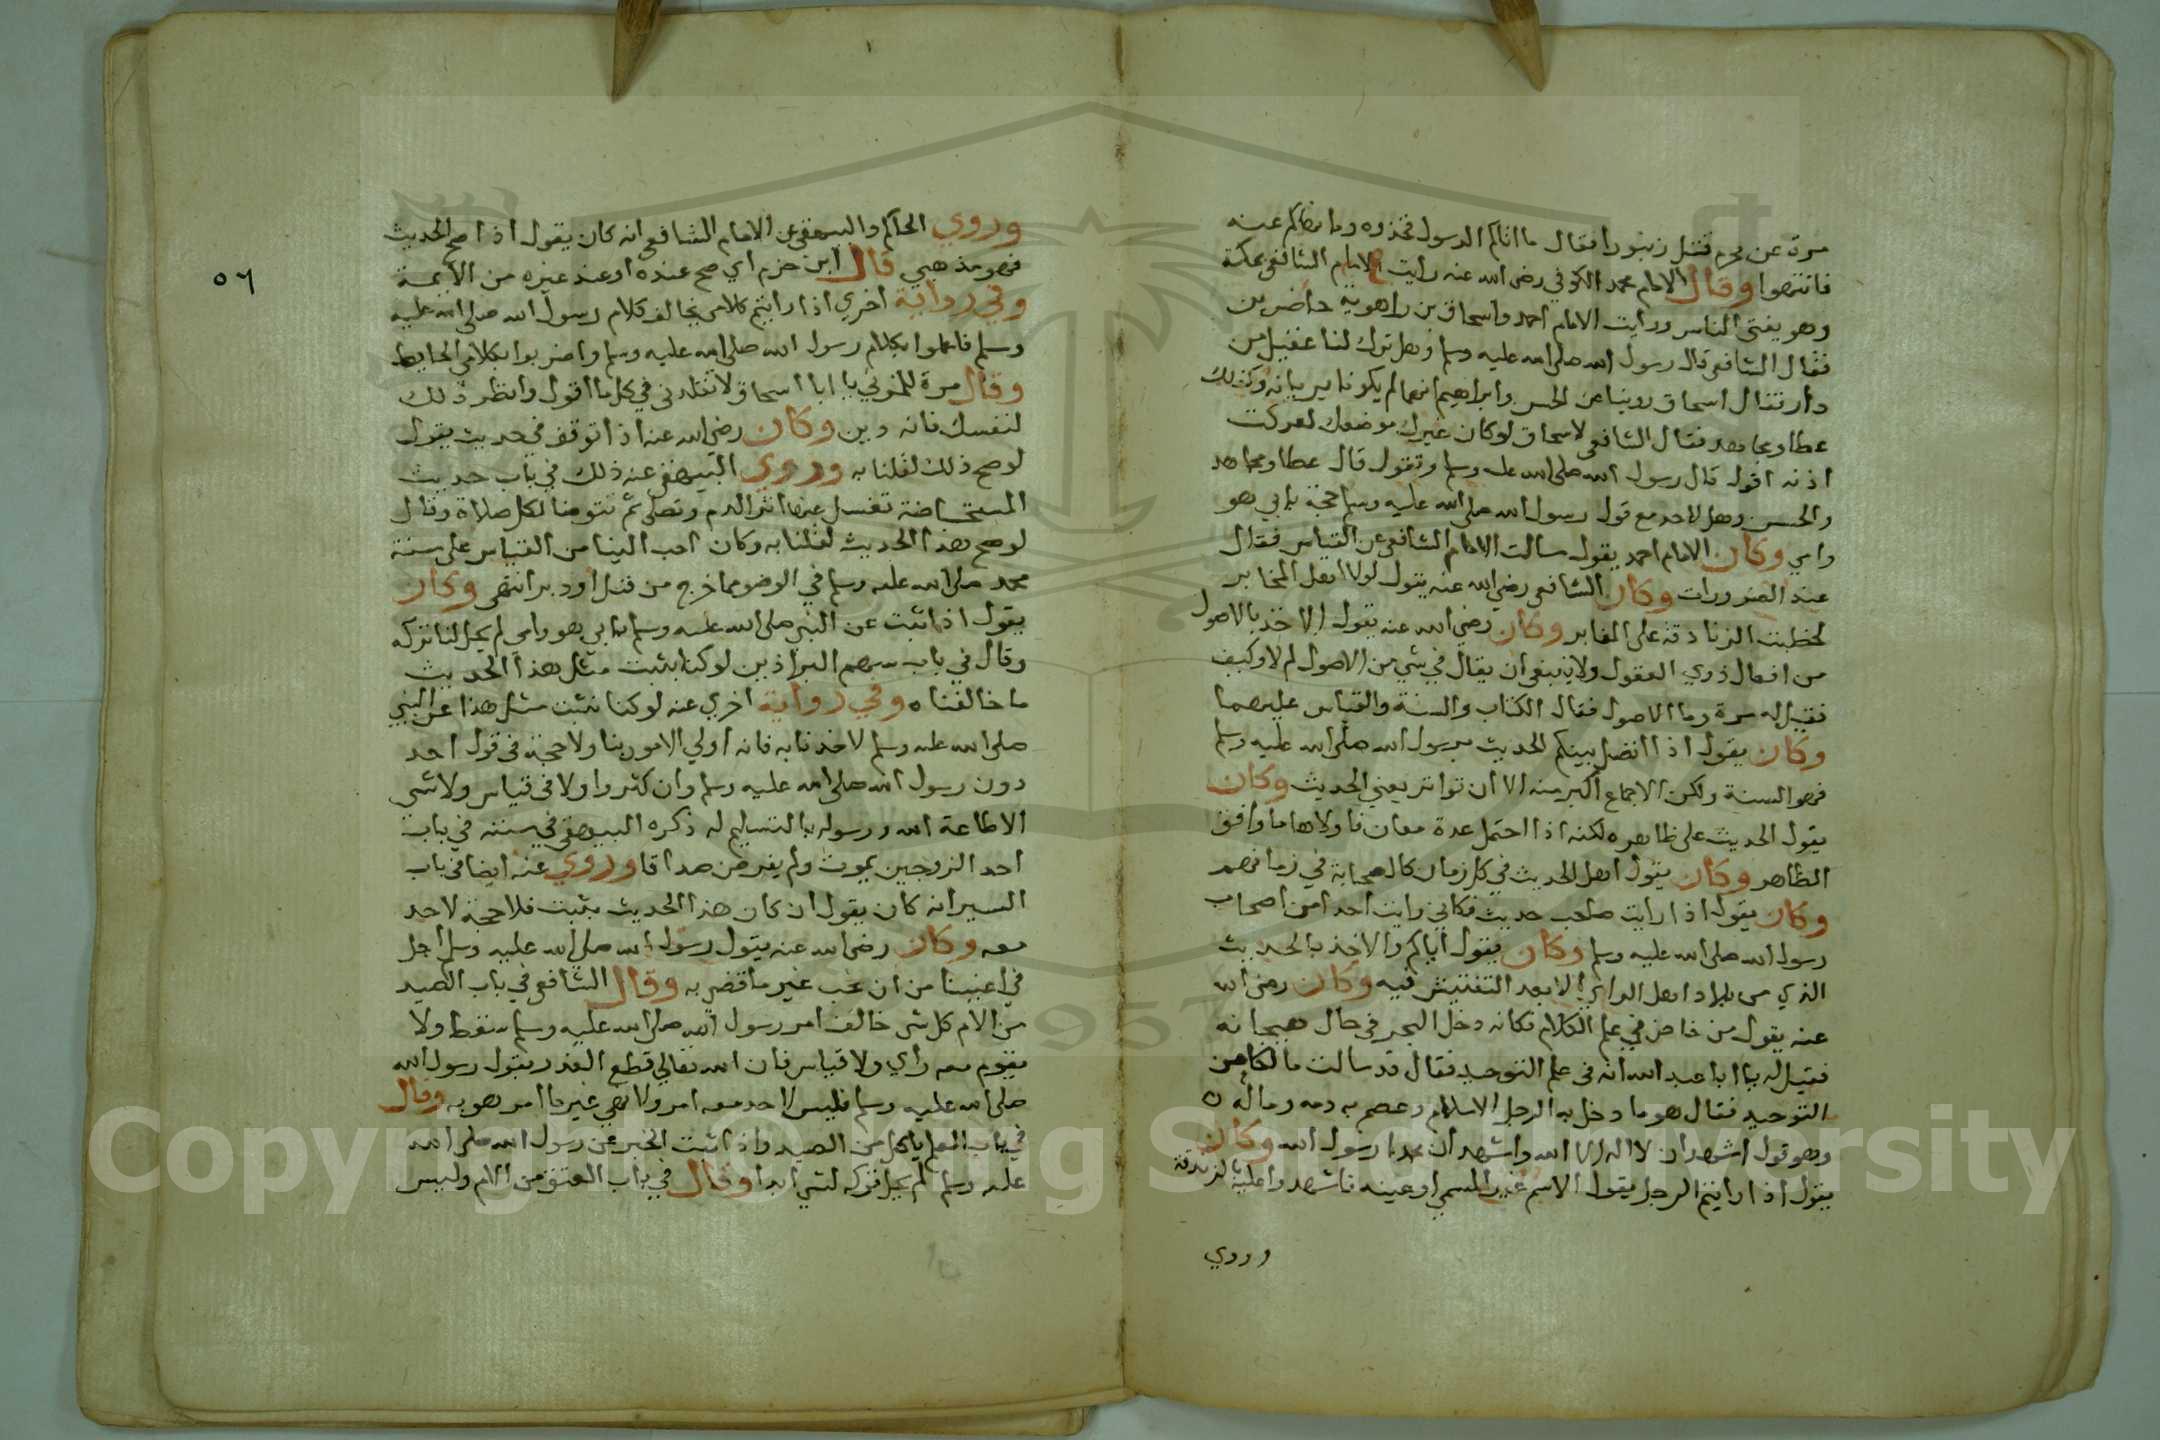 مرة عن محرم قتل زنبورا فقال ما اتاكم الرسول فخذوه وما نهاكم عنه
فانتهوا وقال الامام محمد الكوفي رضي الله عنه رايت الامام الشافعي بمكة
وهو يفتي الناس ورايت الامام احمد واسحاق بن راهويه حاضرين
فقال الشافعي قال رسول الله صلى الله عليه وسلم وهل ترك لنا عقيل من
دار فقال اسحاق روينا عن الحسن وابراهيم انهما لم يكونا يريانه وكذلك
عطا ومجاهد فقال الشافعي لاسحاق لو كان غيرك موضعك لفركت
اذنه اقول قال رسول الله صلى الله عليه وسلم وتقول قال عطا ومجاهد
والحسن وهل لاحد مع قول رسول الله صلى الله عليه وسلم حجة بابي هو
وامي وكان الامام احمد يقول سالت الامام الشافعي عن القياس فقال
عند الضرورات وكان الشافعي رضي الله عنه يقول لولا اهل المحابر
لخطبت الزنادقة على المنابر وكان رضي الله عنه يقول الاخذ بالاصول
من افعال ذوي العقول ولا ينبغي ان يقال في شي من الاصول لم ولا كيف
فقيل له مرة وما الاصول فقال الكتاب والسنة والقياس عليهما
وكان يقول اذا اتصل بينكم الحديث برسول الله صلى الله عليه وسلم
فهو السنة ولكن الاجماع اكبر منه الا ان تواتر يعني الحديث وكان
يقول الحديث على ظاهره لكنه اذا احتمل عدة معان فاولاها ما وافق
الظاهر وكان يقول اهل الحديث في كل زمان كالصحابة في زمانهم
وكان يقول اذا رايت صاحب حديث فكاني رايت احدا من اصحاب
رسول الله صلى الله عليه وسلم وكان يقول اياكم والاخذ بالحديث
الذي من بلاد اهل الراي الا بعد التفتيش فيه وكان رضي الله
عنه يقول من خاض في علم الكلام فكانه دخل البحر في حال هيجانه
فقيل له يا ابا عبد الله انه في علم التوحيد فقال قد سالت مالكا عن
التوحيد فقال هو ما دخل به الرجل الاسلام وعصم به دمه وماله
وهو قول اشهد ان لا اله الا الله واشهد ان محمدا رسول الله وكان
يقول اذا رايتم الرجل يقول الاسم غير المسمي او عينه فاشهدوا عليه بالزندقة
وروي
٥٦
وروي الحاكم والبيهقي عن الامام الشافعي انه كان يقول اذا صح الحديث
فهو مذهبي قال ابن حزم اي صح عنده او عند غيره من الايمة
وفي رواية اخري اذا رايتم كلامي يخالف كلام رسول الله صلى الله عليه
وسلم فاعملوا بكلام رسول الله صلى الله عليه وسلم واضربوا بكلامي الحايط
وقال مرة للمزني يا ابا اسحاق لا تقلدني في كل ما اقول وانظر ذلك
لنفسك فانه دين وكان رضي الله عنه اذا توقف في حديث يقول
لو صح ذلك لقلنا به وروي البيهقي عنه ذلك في باب حديث
المستحاضة تغسل عنها اثر الدم وتصلي ثم تتوضا لكل صلاة وقال
لو صح هذا الحديث لقلنا به وكان احب الينا من القياس على سنة
محمد صلى الله عليه وسلم في الوضو مما خرج من قبل او دبر انتهى وكان
يقول اذا ثبت عن النبي صلى الله عليه وسلم بابي هو وامي لم يحل لنا تركه
وقال في باب سهم البراذين لو كنا نثبت مثل هذا الحديث
ما خالفناه وفي رواية اخري عنه لو كنا نثبت مثل هذا عن النبي
صلى الله عليه وسلم لاخذنا به فانه اولي الامور بنا ولا حجة في قول احد
دون رسول الله صلى الله عليه وسلم وان كثروا ولا في قياس ولا شي
الا طاعة الله ورسوله بالتسليم له ذكره البيهقي في سننه في باب
احد الزوجين يموت ولم يفرض صداقا وروي عنه ايضا في باب
السير انه كان يقول ان كان هذا الحديث يثبت فلا حجة لاحد
معه وكان رضي الله عنه يقول رسول الله صلى الله عليه وسلم اجل
في اعيننا من ان نحب غير ما قضي به وقال الشافعي في باب الصيد
من الام كل شي خالف امر رسول الله صلى الله عليه وسلم سقط ولا
يقوم معه راي ولا قياس فان الله تعالى قطع العذر بقول رسول الله
صلى الله عليه وسلم فليس لاحد معه امر ولا نهي غير ما امر هو به وقال
في باب المعلم ياكل من الصيد واذا ثبت الخبر عن رسول الله صلى الله
عليه وسلم لم يحل تركه لشي ابدا وقال في باب العتق من الام وليس
Copyright © King Saud University
1957